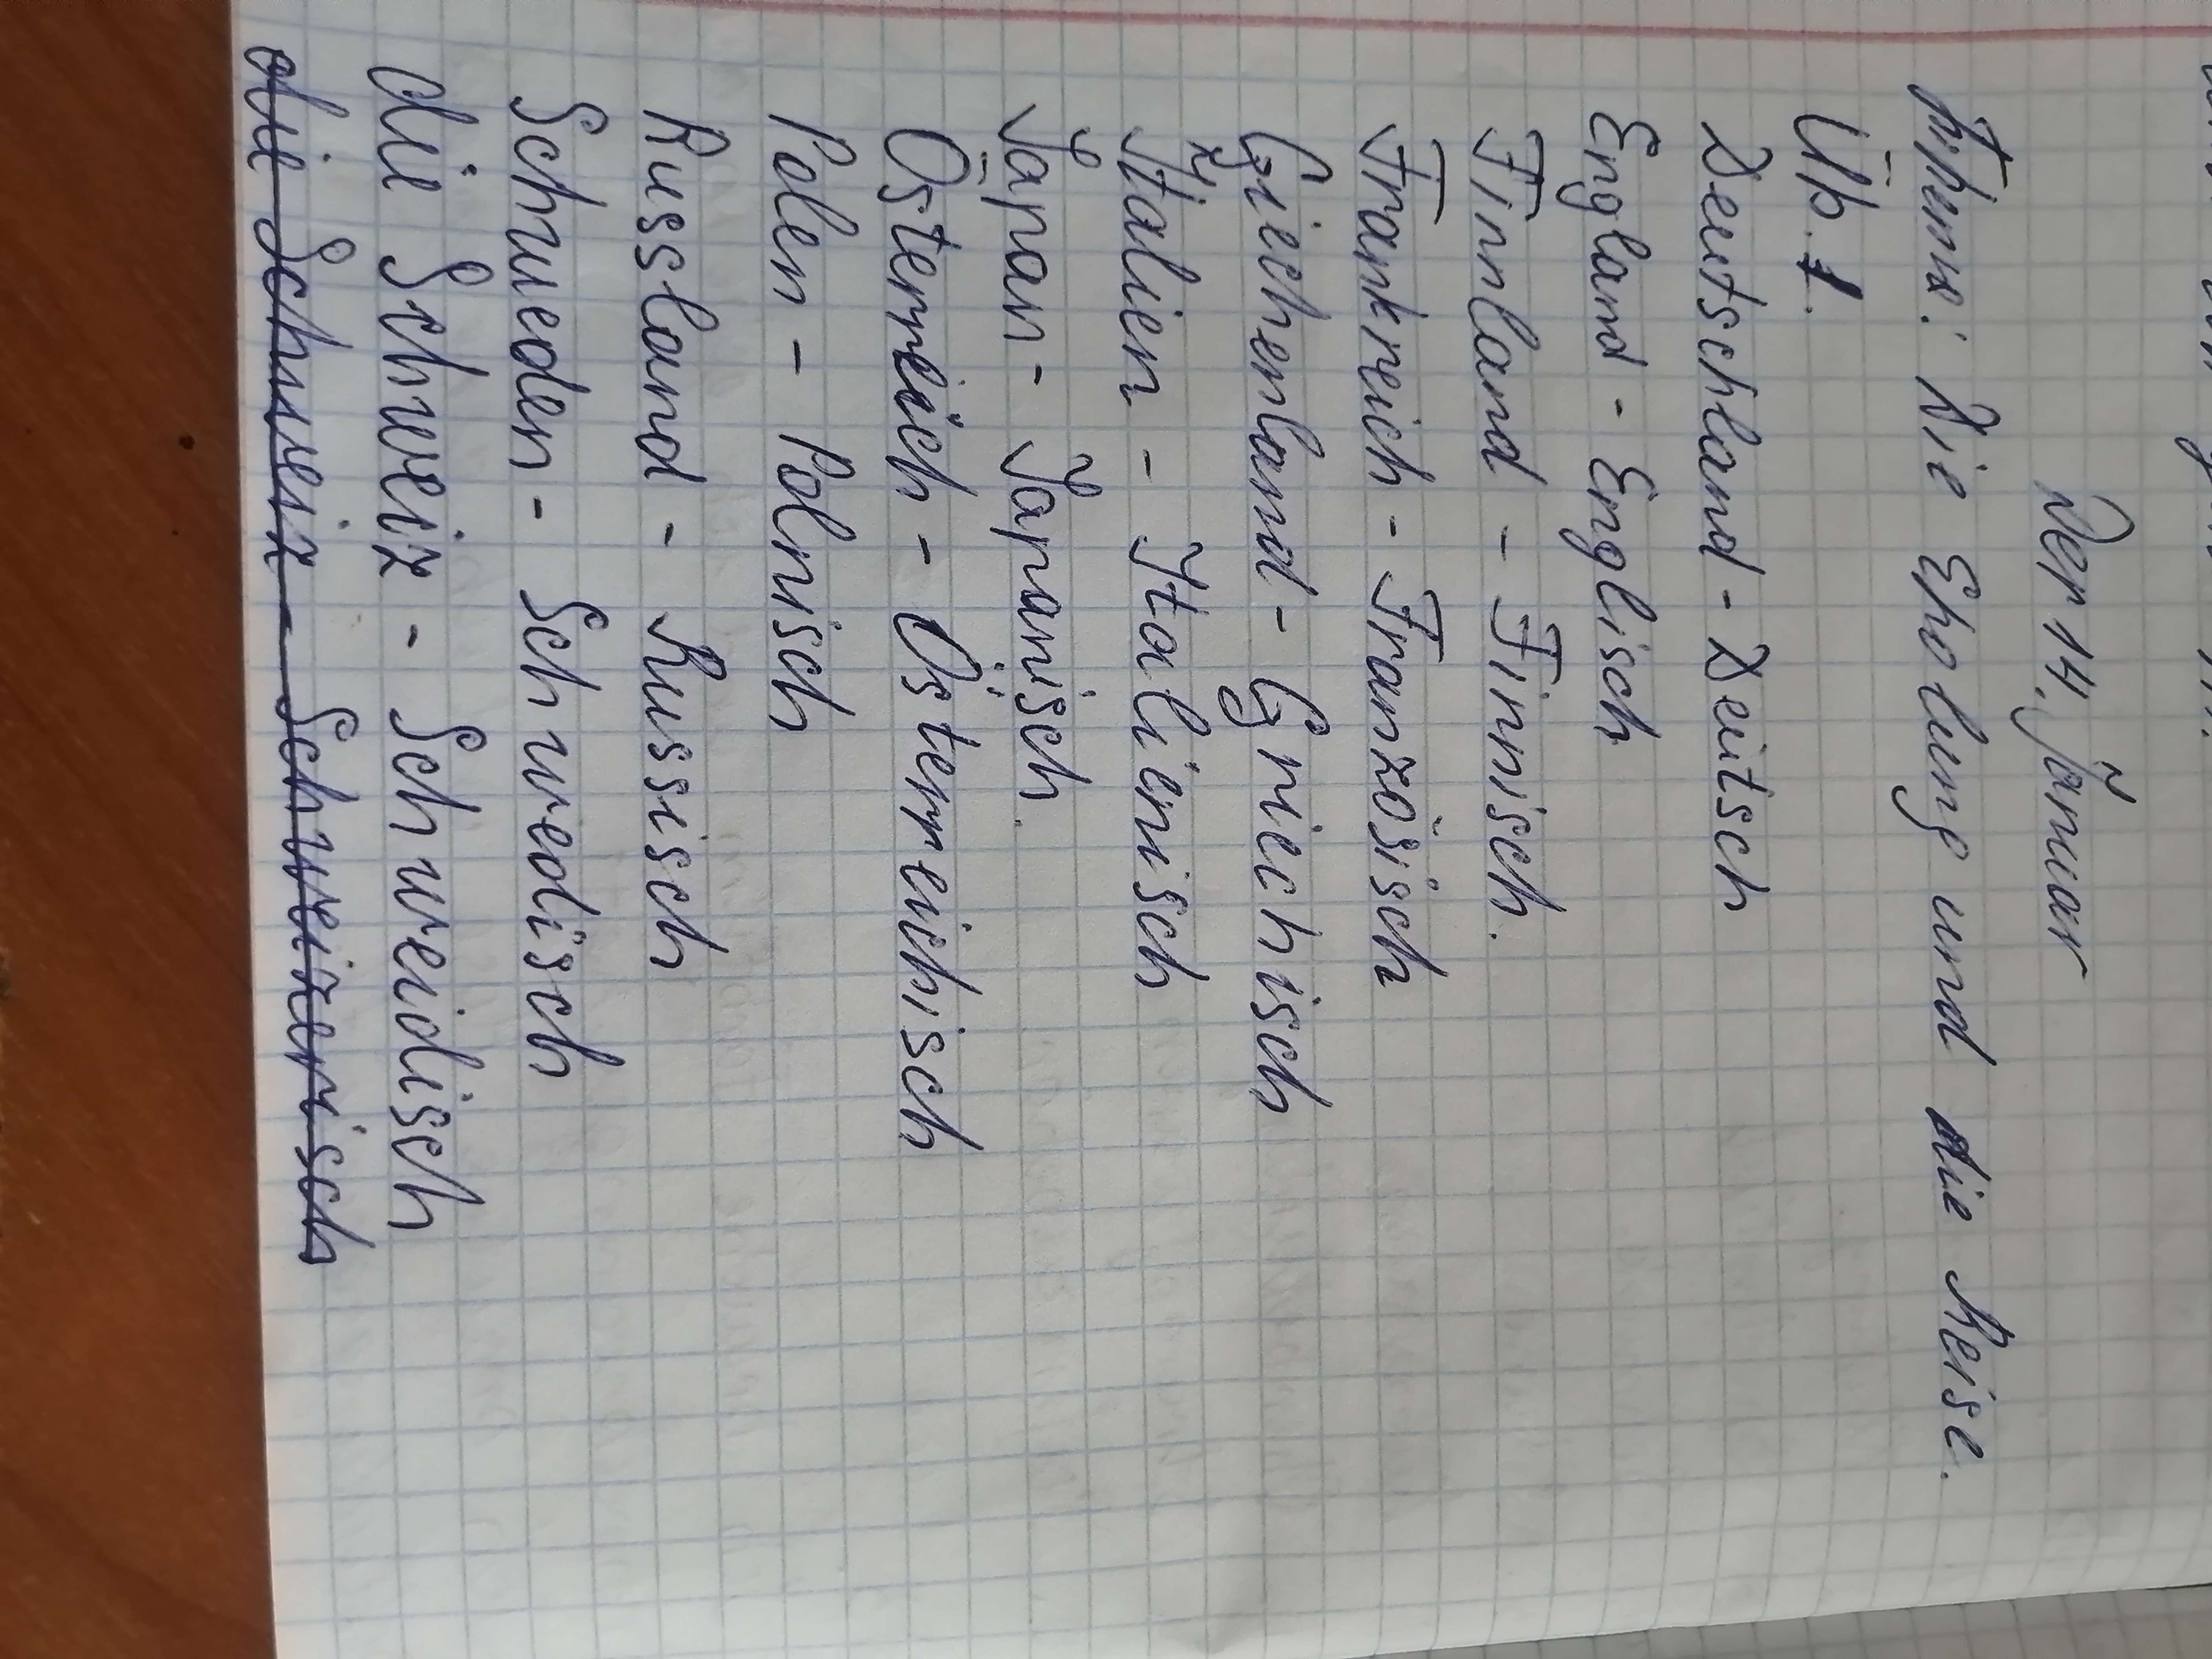 Der 14. Januar
Thema: Die Eholung und die Reise.
Üb. 1.
Deutschland - Deutsch
England - Englisch
Finnland - Finnisch.
Frankreich - Französisch
Giechenland - Griechisch
Italien - Italienisch
Japan - Japanisch.
Österreich - Österreichisch
Polen - Polnisch
Russland - Russisch
Schweden - Schwedisch
die Schweiz - Schweidisch
die Schweiz - Schweizerisch